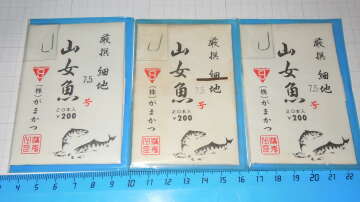 厳撰 細地
山女魚
7.5号
(株)がまかつ
20本入
¥200
厳撰 細地
山女魚
7.5号
(株)がまかつ
20本入
¥200
厳撰 細地
山女魚
7.5号
(株)がまかつ
20本入
¥200
4 5 6 7 8 9 10 11 12 13 14 15 16 17 18 19 20 21 22